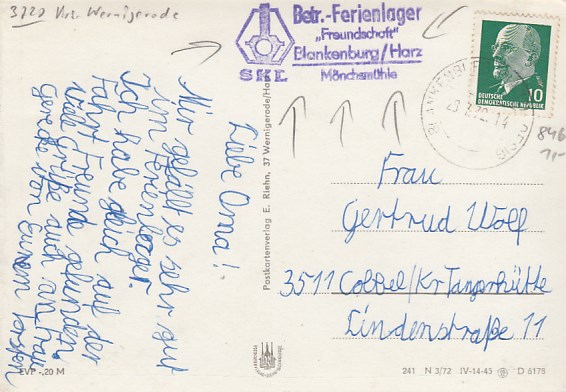 3720 Krs. Wernigerode
SKL
Betr.-Ferienlager
„Freundschaft"
Blankenburg/Harz
Mönchsmühle
DEUTSCHE
DEMOKRATISCHE REPUBLIK
10
846
1,-
Liebe Oma!
Mir gefällt es sehr gut
im Ferienlager.
Ich habe gleich auf der
Fahrt Freunde gefunden.
Viele Grüße auch an Frau
von Eurem Torsten
Postkartenverlag E. Riehn, 37 Wernigerode/Harz
Frau
Gertrud Wolf
3511 Cobbel/Kr Tangerhütte
Lindenstraße 11
EVP -,20 M
241 N 3/72 IV-14-45 D 6178